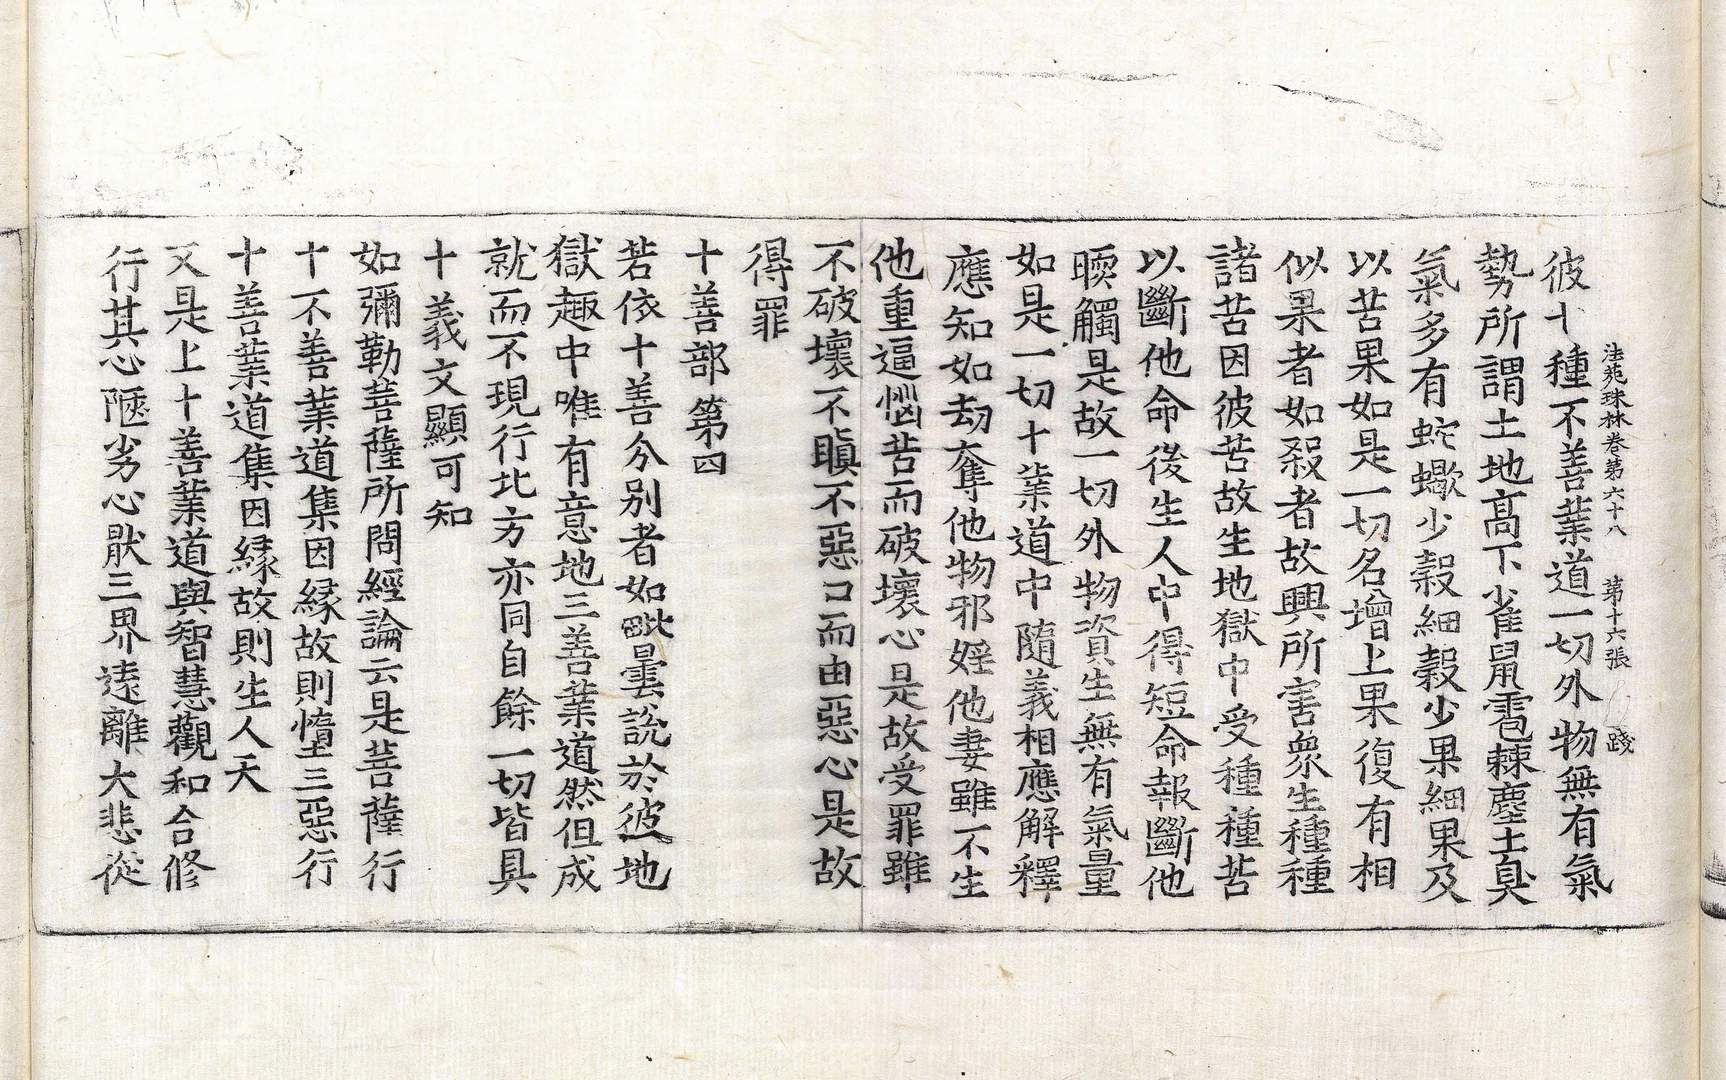 法苑珠林卷第六十八 第十六張 踐
彼十種不善業道一切外物無有氣
勢所謂土地高下雀鼠雹棘塵土臭
氣多有蛇蠍少穀細穀少果細果及
以苦果如是一切名增上果復有相
似果者如殺者故興所害眾生種種
諸苦因彼苦故生地獄中受種種苦
以斷他命後生人中得短命報斷他
暖觸是故一切外物資生無有氣量
如是一切十業道中隨義相應解釋
應知如劫奪他物邪婬他妻雖不生
他重逼惱苦而破壞心是故受罪雖
不破壞不瞋不惡口而由惡心是故
得罪
十善部第四
若依十善分別者如毗曇說於彼地
獄趣中唯有意地三善業道然但成
就而不現行北方亦同自餘一切皆具
十義文顯可知
如彌勒菩薩所問經論云是菩薩行
十不善業道集因緣故則墮三惡行
十善業道集因緣故則生人天
又是上十善業道與智慧觀和合修
行其心陿劣心猒三界遠離大悲從